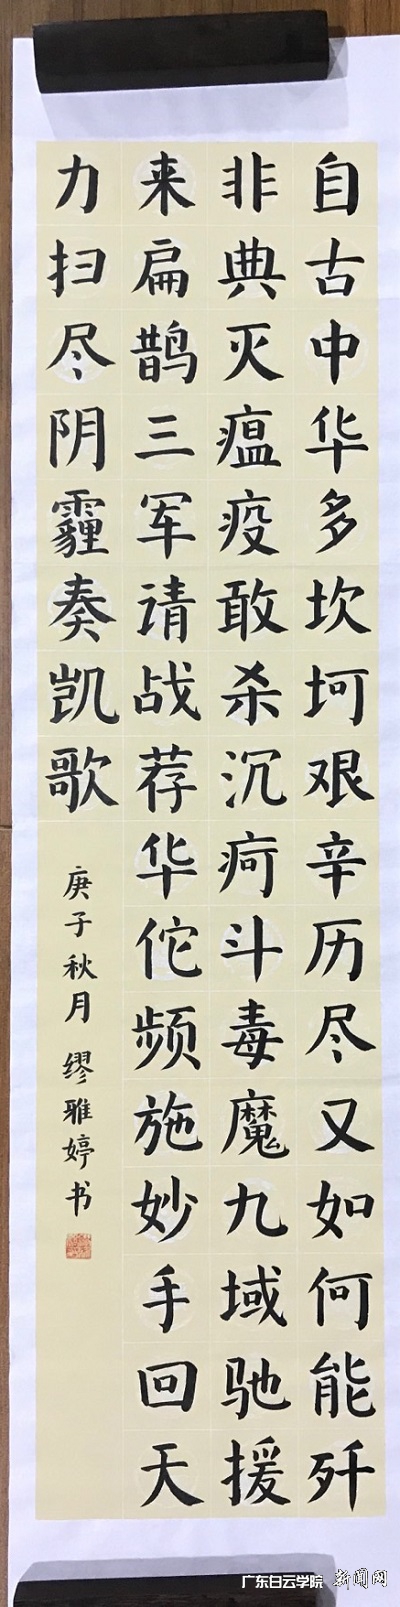 自古中华多坎坷艰辛历尽又如何能歼
非典灭瘟疫敢杀沉疴斗毒魔九域驰援
来扁鹊三军请战荐华佗频施妙手回天
力扫尽阴霾奏凯歌
庚子秋月缪雅婷书
广东白云学院 新闻网